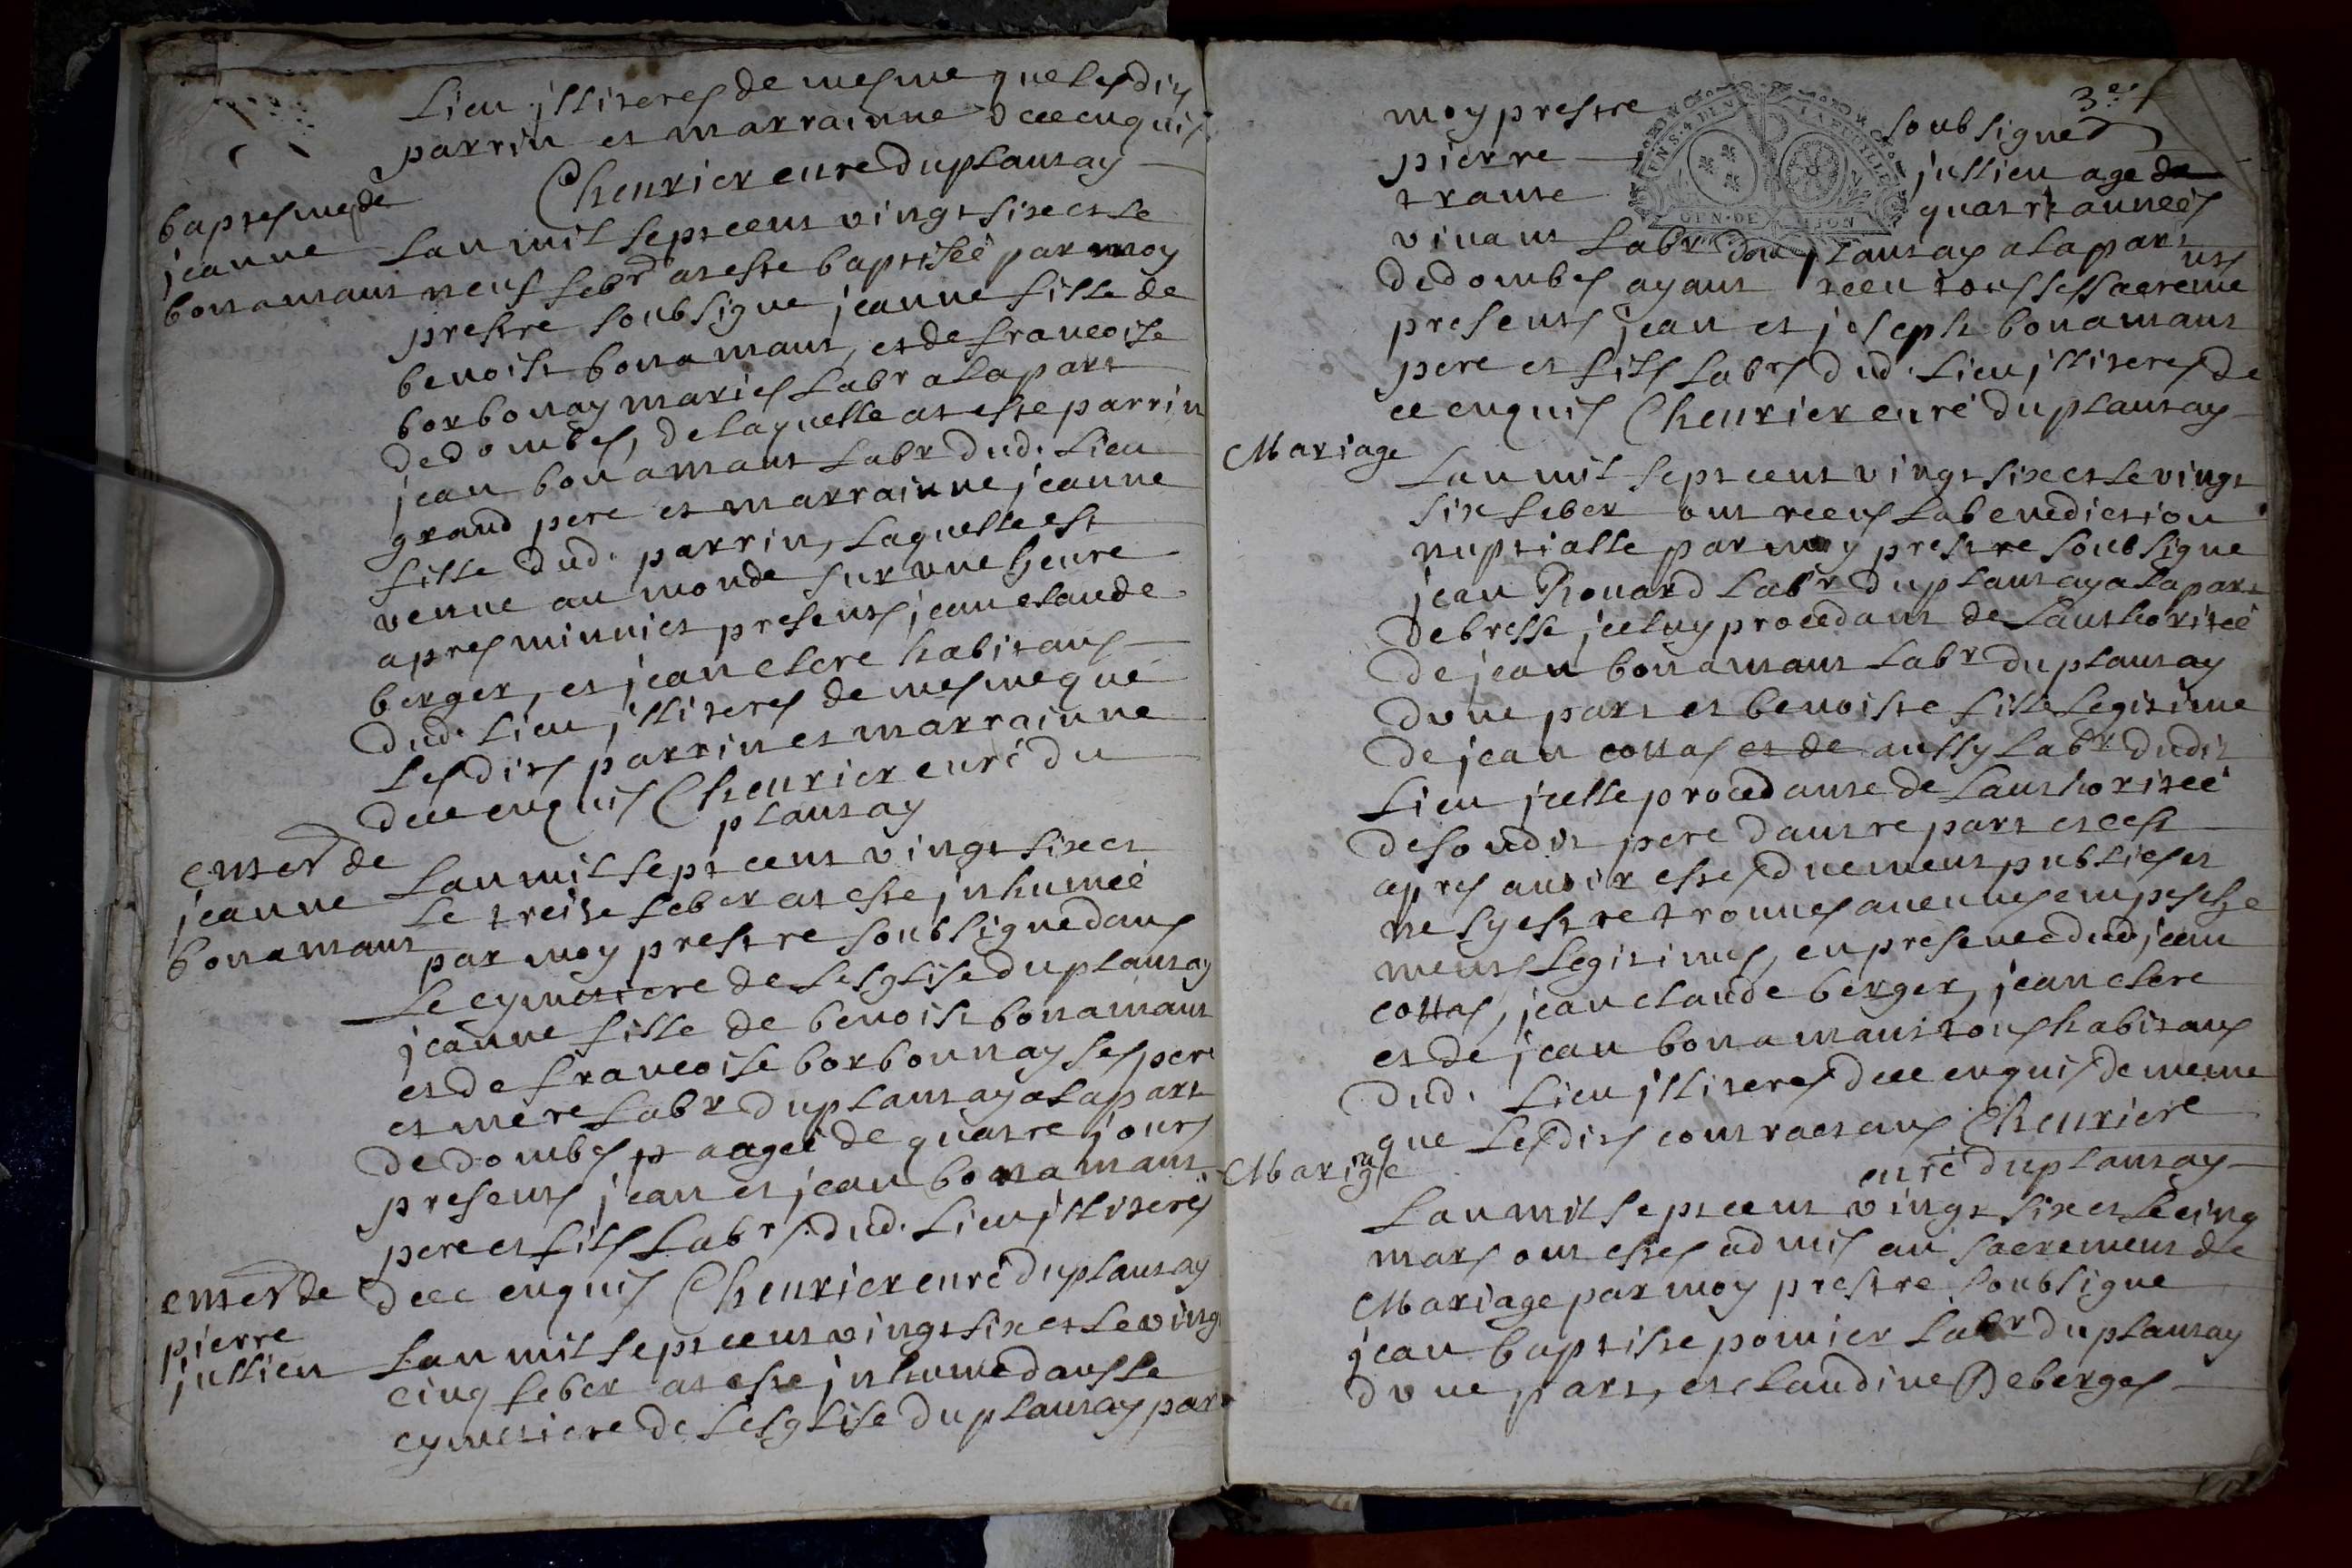 Lieu illiterés de mesme que lesdits
parrin et marrainne dece enquis
Cheurier curé du plantay
baptesme de
jeanne
bonamant
Lan mil sept cent vingt six et le
neuf febr at esté baptisée par moy
prestre soubsigne jeanne fille de
benoist bonamant, et de francoise
borbonay mariés Labr a la part
de dombes, de laquelle at esté parrin
jean bonamant Labr dud. Lieu
grand pere et marrainne jeanne
fille dud. parrin, laquelle est
venue au monde sur une heure
apres minuict presents jean claude
berger, et jean clere habitans
dud. Lieu illiterés de mesme que
Lesdits parrin et marrainne
dece enquis Cheurier curé du
plantay
enterr de
jeanne
bonamant
Lan mil sept cent vingt six et
Le treise feber at esté inhumée
par moy prestre soubsigné dans
Le cymetiere de Lesglise du plantay
jeanne fille de benoist bonamant
et de francoise borbonnay ses pere
et mere Labr du plantay a la part
de dombes p aagée de quatre jours
presents jean et jean bonamant
pere et fils Labrs dud. Lieu illiterés
dece enquis Cheurier curé du plantay
enterr de
pierre
jullien
Lan mil sept cent vingt six et le vingt
cinq feber at esté inhumé dans le
cymetiere de Lesglise du plantay par
3e
moy prestre soubsigned
pierre jullien agé de
trante quattre années
vivant Labr dou plantay a la part
de dombes ayant receu tous ses sacreme
nts
presents jean et joseph bonamant
pere et fils Labrs dud. Lieu illiterés de
ce enquis Cheurier curé du plantay
Mariage
Lan mil sept cent vingt six et le vingt
six feber ont receus La benediction
nuptialle par moy prestre soubsigne
jean Rouard Labr du plantay a la part
de bresse jceluy procedant de Lauthoritée
de jean bonamant Labr du plantay
dune part et benoiste fille legitime
de jean cottas et de aussy Labr dudit
Lieu jcelle procedante de Lauthoritée
de sondit pere dautre part et cest
apres avoir estes duement publiés et
ne sy estre trouves aucunes empesche
ments legitimes, en presence dud jean
cottas, jean claude berger, jean clere
et de jean bonamant tous habitans
dud. Lieu illiterés dece enquis de meme
que Lesdits contractans Cheuriere
curé du plantay
Mariage
Lan mil sept cent vingt six et le cinq
mars ont estes admis au sacrement de
Mariage par moy prestre soubsigne
jean baptiste pomier Labr du plantay
dune part, et claudine Deberges